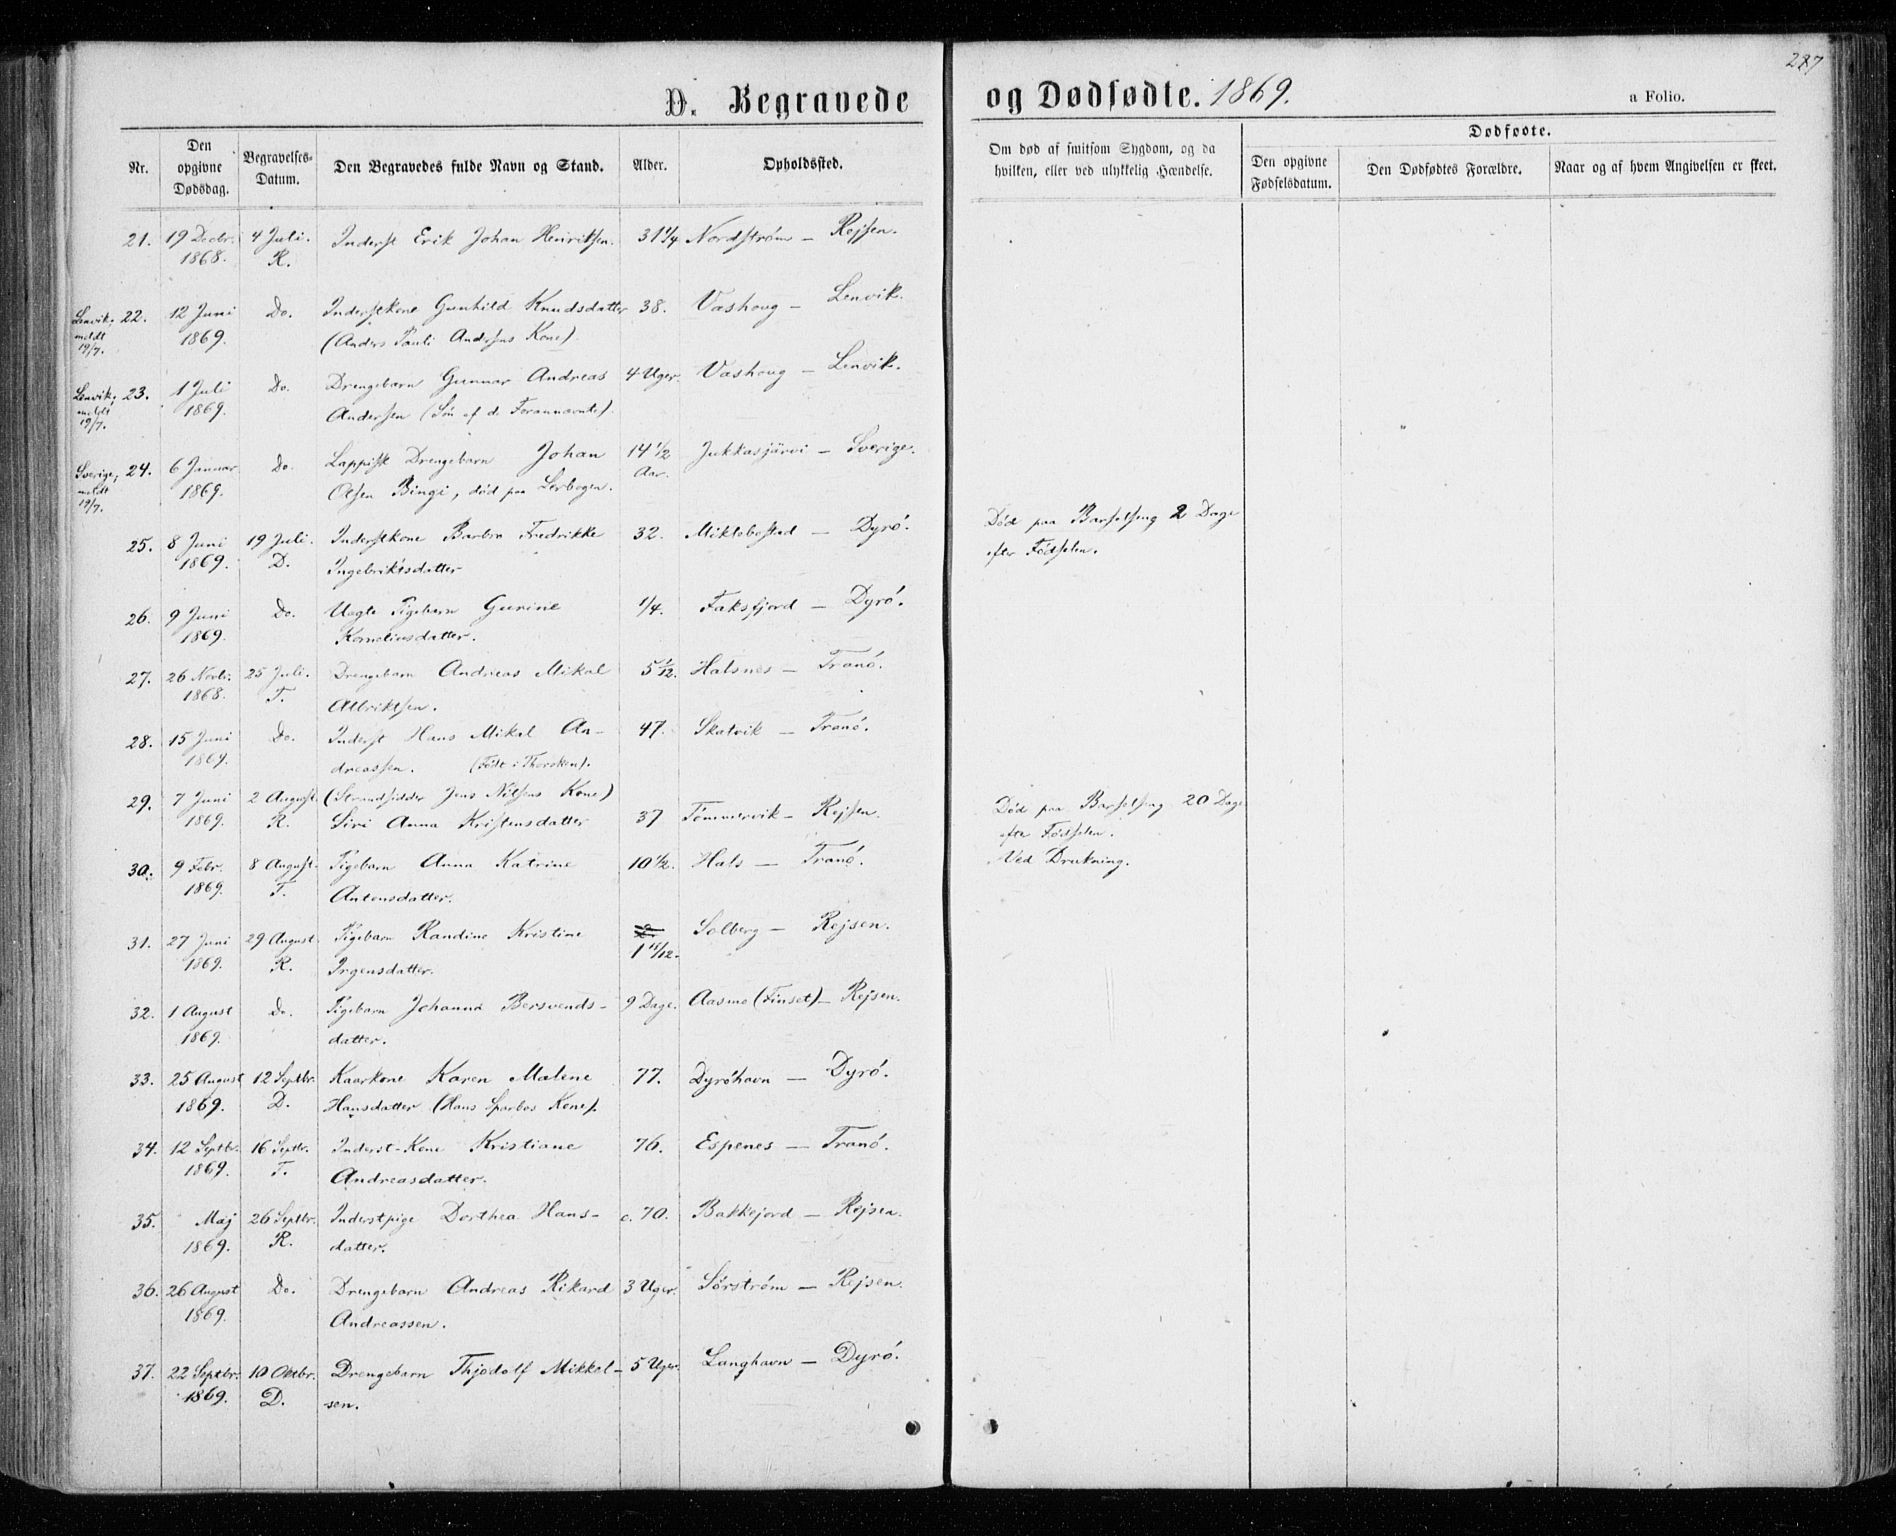 287
D. Begravede og Dødfødte. 1869.
a Folio.
Nr.
Den opgivne Dødsdag.
Begravelses-Datum.
Den Begravedes fulde Navn og Stand.
Alder.
Opholdssted.
Om død af smitsom Sygdom, og da hvilken, eller ved ulykkelig Hændelse.
Dødfødte.
Den opgivne Fødselsdatum.
Den Dødfødtes Forældre.
Naar og af hvem Angivelsen er skeet.
21. 19 Decbr. 4 Juli. Inderst Erik Johan Henriksen. 31 1/4 Nordstrøm — Rejsen.
1868. R.
Lenvik, 22. 12 Juni Do. Inderstkone Gunhild Knudsdatter 38. Vashoug — Lenvik.
meldt 19/7. 1869. (Anders Pauli Andersens Kone).
Lenvik, 23. 1 Juli Do. Drengebarn Gunnar Andreas 4 Uger. Vashoug — Lenvik.
meldt 19/7. 1869. Andersen (Søn af de Forannævnte).
Sverige, 24. 6 Januar Do. Lappisk Drengebarn Johan 14 1/2 Aar. Jukkasjärvi — Sverige.
meldt 19/7. 1869. Olsen Bingi, død paa Lerbogen.
25. 8 Juni 19 Juli. Inderstkone Barbra Fredrikke 32. Miklebostad — Dyrö. Död paa Barselseng 2 Dage
1869. D. Ingebriktsdatter efter Födselen.
26. 9 Juni Do. Uægte Pigebarn Gurine 1/4. Faksfjord — Dyrö.
1869. Korneliusdatter.
27. 26 Novbr. 25 Juli. Drengebarn Andreas Mikal 5 1/12. Halsnes — Tranö.
1868. T. Albriktsen.
28. 15 Juni Do. Inderst Hans Mikal An- 47. Skatvik — Tranö.
1869. dreassen. (Födt i Thorsken).
29. 7 Juni 2 August. (Strandsidder Jens Nilsens Kone)
1869. R. Siri Anna Kristensdatter 37 Tömmervik — Rejsen. Död paa Barselseng 20 Dage
efter Födselen.
30. 9 Febr. 8 August. Pigebarn Anna Katrine 10 1/2. Hals — Tranö. Ved Drukning.
1869. T. Antonsdatter.
31. 27 Juni 29 August. Pigebarn Randine Kristine 1 11/12. Solberg — Rejsen.
1869. R. Irgensdatter.
32. 1 August Do. Pigebarn Johanna Bersvends- 9 Dage. Aasmo (Finset) — Rejsen.
1869. datter.
33. 25 August 12 Septbr. Kaarkone Karen Malene 77. Dyröhavn — Dyrö.
1869. D. Hansdatter (Hans Sparbos Kone).
34. 12 Septbr. 16 Septbr. Inderst-Kone Kristiane 76. Espenes — Tranö.
1869. T. Andreasdatter.
35. Maj 26 Septbr. Inderstpige Dorthea Hans- c. 70. Bakkejord — Rejsen.
1869. R. datter.
36. 26 August Do. Drengebarn Andreas Rikard 3 Uger. Sörström — Rejsen.
1869. Andreassen.
37. 22 Septbr. 10 Oktbr. Drengebarn Thjodolf Mikkel- 5 Uger. Langhavn — Dyrö.
1869. D. sen.